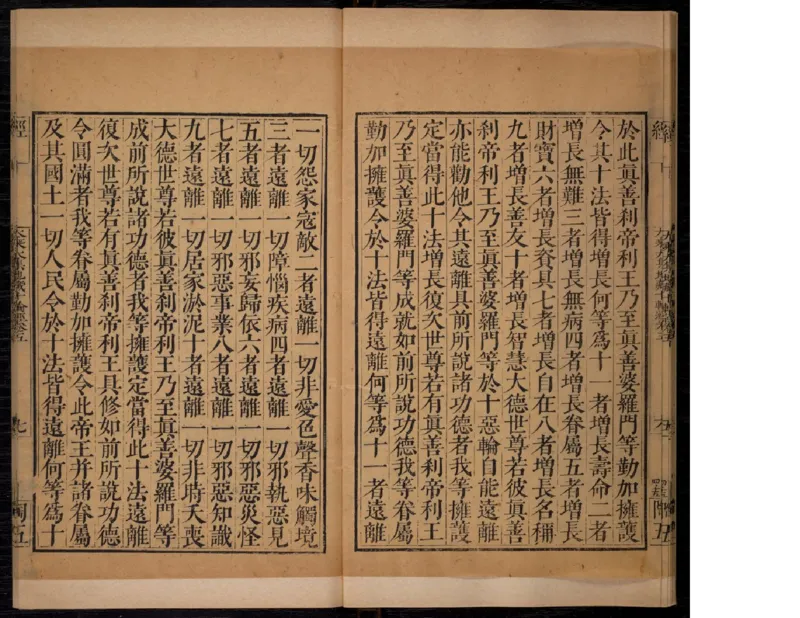 於此眞善刹帝利王乃至眞善婆羅門等勤加擁護
令其十法皆得增長何等爲十一者增長壽命二者
增長無難三者增長無病四者增長眷屬五者增長
財寶六者增長資具七者增長自在八者增長名稱
九者增長善友十者增長智慧大德世尊若彼眞善
刹帝利王乃至眞善婆羅門等於十惡輪自能遠離
亦能勸他令其遠離具前所說諸功德者我等擁護
定當得此十法增長復次世尊若有眞善刹帝利王
乃至眞善婆羅門等成就如前所說功德我等眷屬
勤加擁護令於十法皆得遠離何等爲十一者遠離
一切怨家寇敵二者遠離一切非愛色聲香味觸境
三者遠離一切障惱疾病四者遠離一切邪執惡見
五者遠離一切邪妄歸依六者遠離一切邪惡災怪
七者遠離一切邪惡事業八者遠離一切邪惡知識
九者遠離一切居家淤泥十者遠離一切非時夭喪
大德世尊若彼眞善刹帝利王乃至眞善婆羅門等
成前所說諸功德者我等擁護定當得此十法遠離
復次世尊若有眞善刹帝利王具修如前所說功德
令圓滿者我等眷屬勤加擁護令此帝王并諸眷屬
及其國土一切人民令於十法皆得遠離何等爲十
經